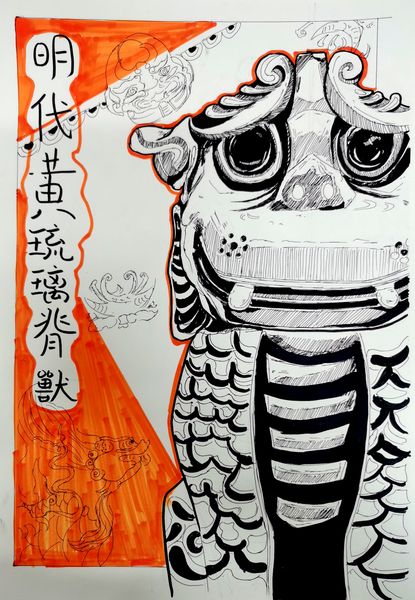 明代黄琉璃脊獸